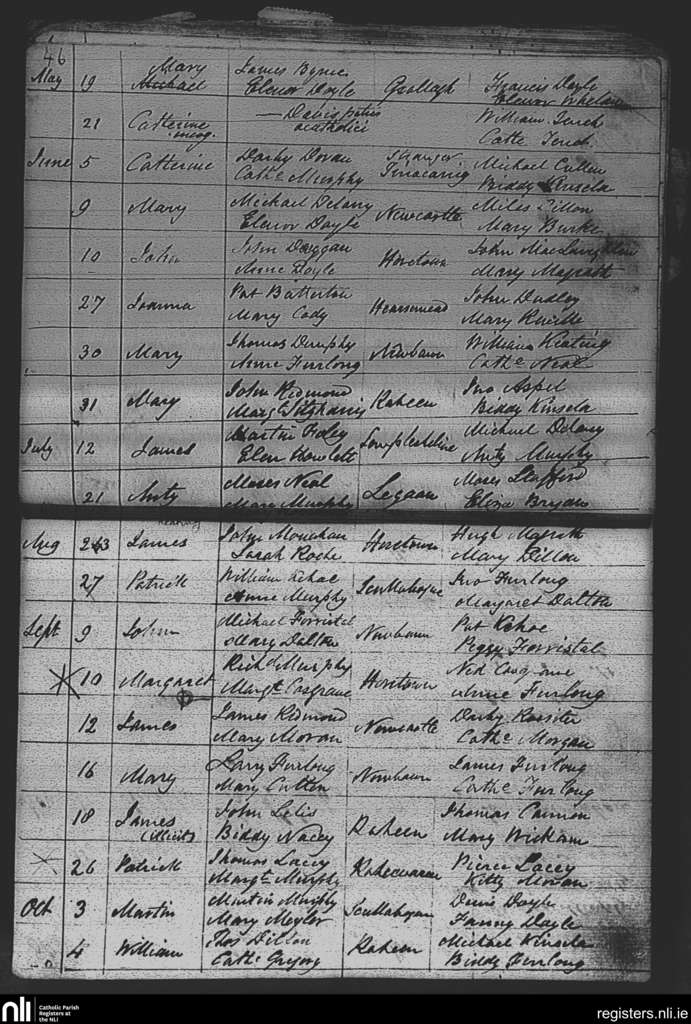 46
Mary James Byrne Francis Doyle
May 19 Michael Elenor Doyle Grollagh Elenor Whelan
— Davis petris William Furch
21 Catherine acatholici Cathe
Darby Doran Stranger Michael Cullen
June 5 Catherine Cathe Murphy Tinacarrig Biddy Kinsela
Michael Delany Miles Dillon
9 Mary Elenor Doyle Newcastle Mary Burke
John Duggan John MacLaughlin
10 John Anne Doyle Horetown Mary Magrath
Pat Batterton John Dudley
27 Joanna Mary Cody Mary
Thomas Dunphy William Keating
30 Mary Anne Furlong Newbawn Cathe Neal
John Redmond Jno Aspel
31 Mary Margt Fitzharris Raheen Biddy Kinsela
Martin Foley Michael Delany
July 12 James Elen Howlett Templeshiline Anty Murphy
Moses Neal Moses Stafford
21 Anty Mary Murphy Legaan Eliza Bryan
John Monahan Hugh Magrath
Aug 23 James Sarah Roche Horetown Mary Dillon
William Kehoe Jno Furlong
27 Patrick Anne Murphy Scullabogue Margaret Dalton
Michael Forristal Pat Kehoe
Sept 9 John Mary Dalton Newbawn Peggy Forristal
Richd Murphy Ned Cosgrave
10 Margaret Margt Cosgrave Horetown Anne Furlong
James Redmond Darby Rossiter
12 James Mary Moran Newcastle Cathe Morgan
Larry Furlong James Furlong
16 Mary Mary Cullen Newbawn Cathe Furlong
John Lelis Thomas Cannon
18 James Biddy Nacey Raheen Mary Wickam
(illicit)
Thomas Lacey Pierce Lacey
26 Patrick Margt Murphy Raheenvarren Kitty Moran
Martin Murphy Denis Doyle
Oct 3 Martin Mary Meyler Scullabogue Fanny Doyle
Thos Dillon Michael Kinsela
4 William Cathe Gregory Raheen Biddy Furlong
nli Catholic Parish
Registers at
the NLI
registers.nli.ie